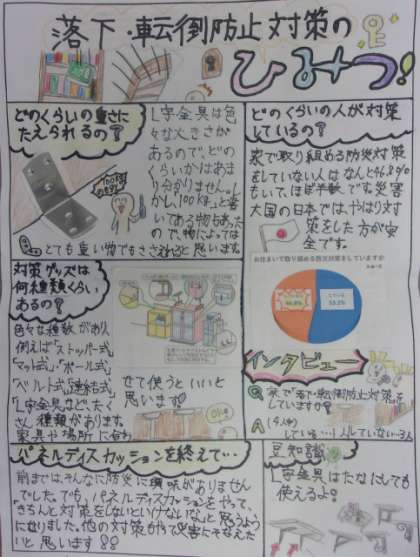 落下・転倒防止対策の
ひみつ!
どのくらいの重さに
たえられるの?
L字金具は色
々な大きさが
あるので、どの
くらいかはあま
り分かりません。し
かし、「100kg」と書
いてある物もあった
ので、物によっては
とても重い物でもささえれると思います。
どのくらいの人が対策
しているの?
家で取り組める防災対策
をしていない人はなんと46.8%
もいて、ほぼ半数です。災害
大国の日本では、やはり対
策をした方が安
全です。
対策グッズは
何種類くらい
あるの?
色々な種類があり、
例えば「ストッパー式」
「マット式」「ポール式」
「ベルト式」「連結式」
「L字金具」など、たく
さん種類があります。
家具や場所に合わ
せて使うといいと
思います!
お住まいで取り組める防災対策をしていますか?
46.8%
53.2%
インタビュー
Q 家で落下・転倒防止対策を
していますか?
A (4人中)
している…1人 していない…3人
パネルディスカッションを終えて…
前までは、そんなに防災に興味がありません
でした。でも、パネルディスカッションをやって、
きちんと対策をしないといけないな、と思うよう
になりました。他の対策もやって災害にそなえた
いと思います!!
豆知識
L字金具はたなにしても
使えるよ!